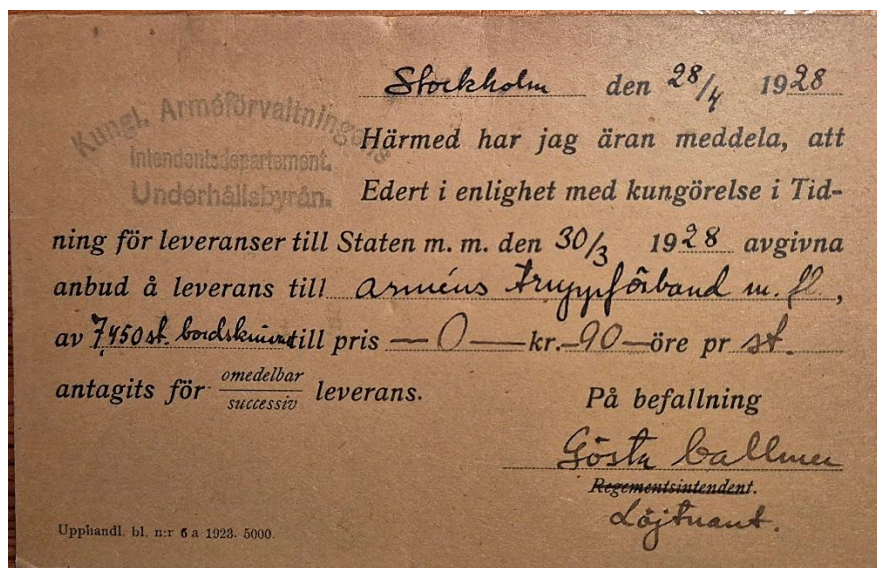 Stockholm den 28/4 1928
Kungl. Arméförvaltningens
Intendentsdepartement.
Underhållsbyrån.
Härmed har jag äran meddela, att
Edert i enlighet med kungörelse i Tid-
ning för leveranser till Staten m. m. den 30/3 1928 avgivna
anbud å leverans till arméns truppförband m. fl,
av 7450 st. bordsknivar till pris — 0 — kr. — 90 — öre pr st.
antagits för omedelbar/successiv leverans.
På befallning
Gösta Callmer
Regementsintendent.
Löjtnant.
Upphandl. bl. n:r 6 a 1923. 5000.